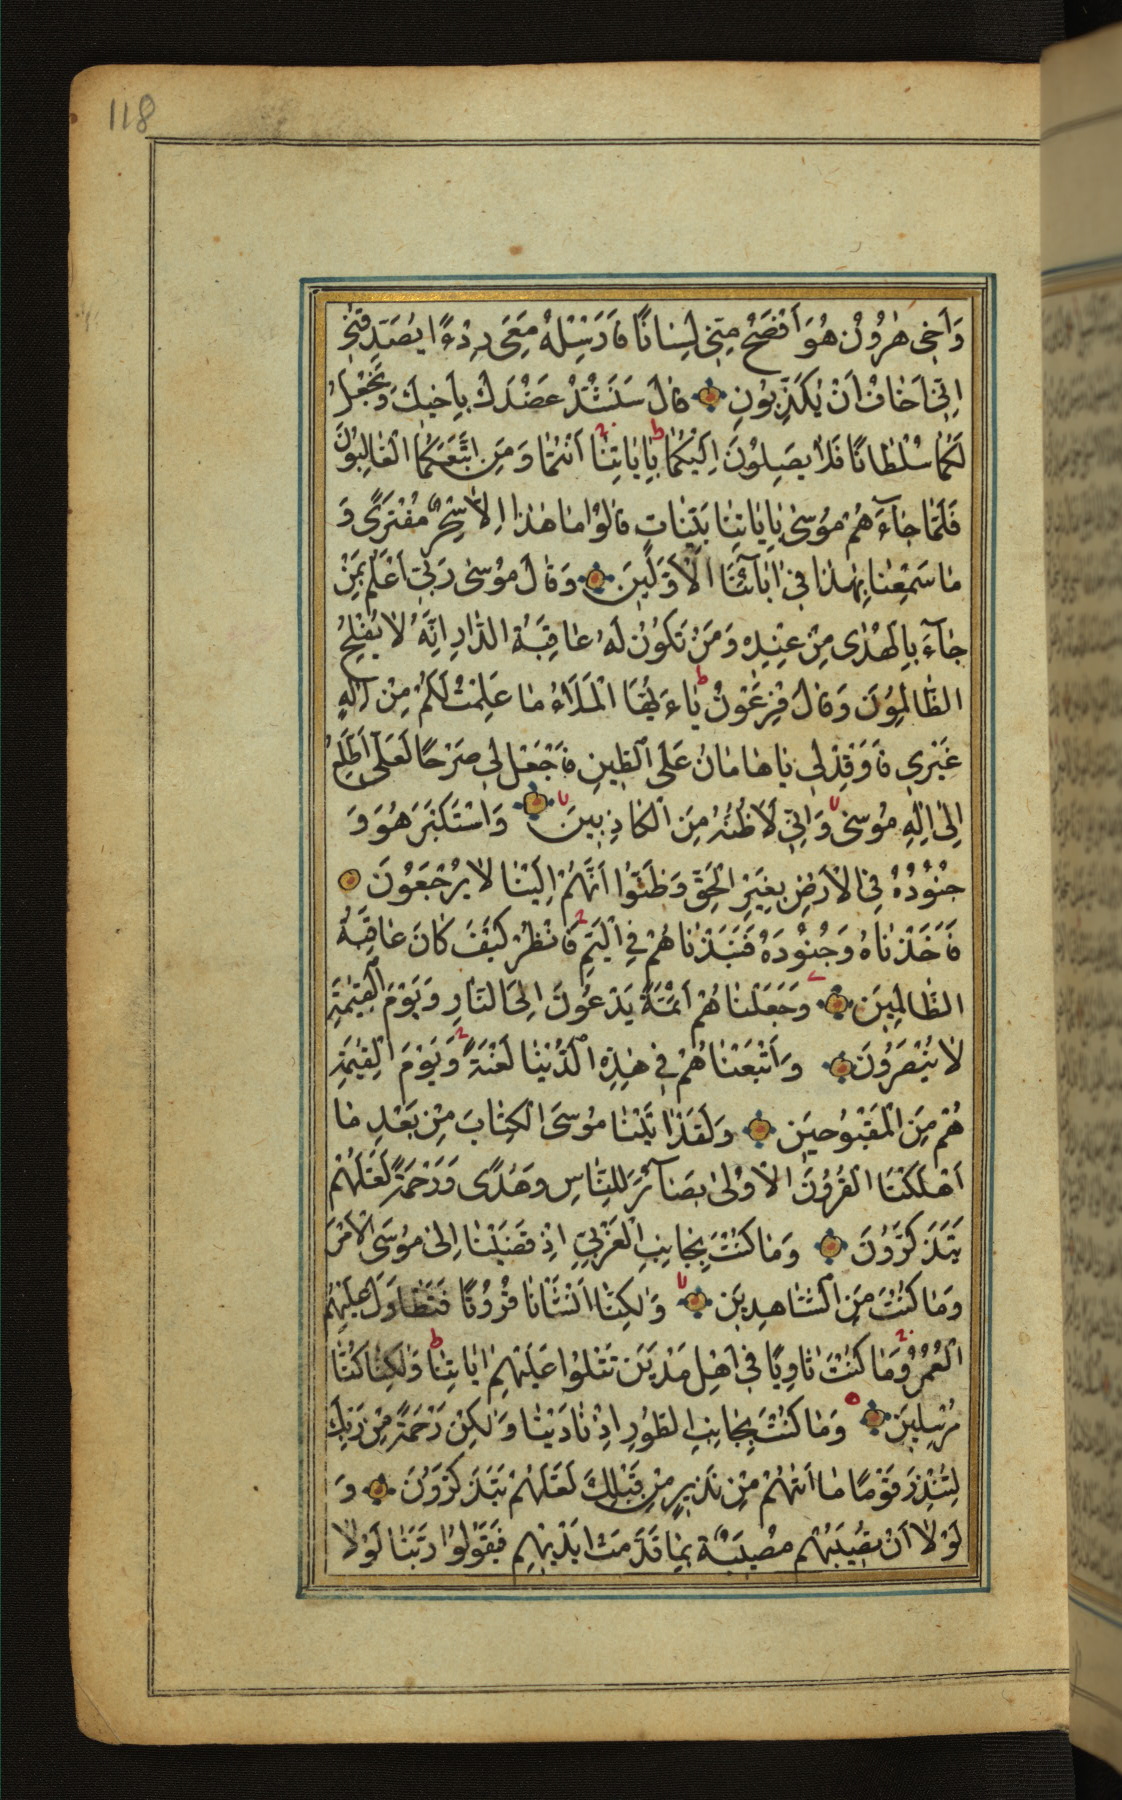 118
وَاَخى هٰرُونُ هُوَ اَفْصَحُ مِنّى لِسٰانًا فَاَرْسِلْهُ مَعِىَ رِدْءًا يُصَدِّقُنى
اِنّى اَخٰافُ اَنْ يُكَذِّبُونِ قٰالَ سَنَشُدُّ عَضُدَكَ بِاَخيكَ وَنَجْعَلُ
لَكُمٰا سُلْطٰانًا فَلٰا يَصِلُونَ اِلَيْكُمٰا بِاٰيٰاتِنٰا اَنْتُمٰا وَمَنِ اتَّبَعَكُمَا الْغٰالِبُونَ
فَلَمّٰا جٰآءَهُمْ مُوسىٰ بِاٰيٰاتِنٰا بَيِّنٰاتٍ قٰالُوا مٰا هٰذٰا اِلّٰا سِحْرٌ مُفْتَرًى وَ
مٰا سَمِعْنٰا بِهٰذٰا فى اٰبٰآئِنَا الْاَوَّلينَ وَقٰالَ مُوسىٰ رَبّى اَعْلَمُ بِمَنْ
جٰآءَ بِالْهُدٰى مِنْ عِنْدِهِ وَمَنْ تَكُونُ لَهُ عٰاقِبَةُ الدّٰارِ اِنَّهُ لٰا يُفْلِحُ
الظّٰالِمُونَ وَقٰالَ فِرْعَوْنُ يٰاءَيُّهَا الْمَلَاءُ مٰا عَلِمْتُ لَكُمْ مِنْ اِلٰهٍ
غَيْرى فَاَوْقِدْ لى يٰا هٰامٰانُ عَلَى الطّينِ فَاجْعَلْ لى صَرْحًا لَعَلّى اَطَّلِعُ
اِلىٰ اِلٰهِ مُوسىٰ وَاِنّى لَاَظُنُّهُ مِنَ الْكٰاذِبينَ وَاسْتَكْبَرَ هُوَ وَ
جُنُودُهُ فِى الْاَرْضِ بِغَيْرِ الْحَقِّ وَظَنُّوا اَنَّهُمْ اِلَيْنٰا لٰا يُرْجَعُونَ
فَاَخَذْنٰاهُ وَجُنُودَهُ فَنَبَذْنٰاهُمْ فِى الْيَمِّ فَانْظُرْ كَيْفَ كٰانَ عٰاقِبَةُ
الظّٰالِمينَ وَجَعَلْنٰاهُمْ اَئِمَّةً يَدْعُونَ اِلَى النّٰارِ وَيَوْمَ الْقِيٰمَةِ
لٰا يُنْصَرُونَ وَاَتْبَعْنٰاهُمْ فى هٰذِهِ الدُّنْيٰا لَعْنَةً وَيَوْمَ الْقِيٰمَةِ
هُمْ مِنَ الْمَقْبُوحينَ وَلَقَدْ اٰتَيْنٰا مُوسَى الْكِتٰابَ مِنْ بَعْدِ مٰا
اَهْلَكْنَا الْقُرُونَ الْاُولىٰ بَصٰآئِرَ لِلنّٰاسِ وَهُدًى وَرَحْمَةً لَعَلَّهُمْ
يَتَذَكَّرُونَ وَمٰا كُنْتَ بِجٰانِبِ الْغَرْبِىِّ اِذْ قَضَيْنٰا اِلىٰ مُوسَى الْاَمْرَ
وَمٰا كُنْتَ مِنَ الشّٰاهِدينَ وَلٰكِنّٰا اَنْشَاْنٰا قُرُونًا فَتَطٰاوَلَ عَلَيْهِمُ
الْعُمُرُ وَمٰا كُنْتَ ثٰاوِيًا فى اَهْلِ مَدْيَنَ تَتْلُوا عَلَيْهِمْ اٰيٰاتِنٰا وَلٰكِنّٰا كُنّٰا
مُرْسِلينَ وَمٰا كُنْتَ بِجٰانِبِ الطُّورِ اِذْ نٰادَيْنٰا وَلٰكِنْ رَحْمَةً مِنْ رَبِّكَ
لِتُنْذِرَ قَوْمًا مٰا اَتٰهُمْ مِنْ نَذيرٍ مِنْ قَبْلِكَ لَعَلَّهُمْ يَتَذَكَّرُونَ وَ
لَوْلٰا اَنْ تُصيبَهُمْ مُصيبَةٌ بِمٰا قَدَّمَتْ اَيْديهِمْ فَيَقُولُوا رَبَّنٰا لَوْلٰا